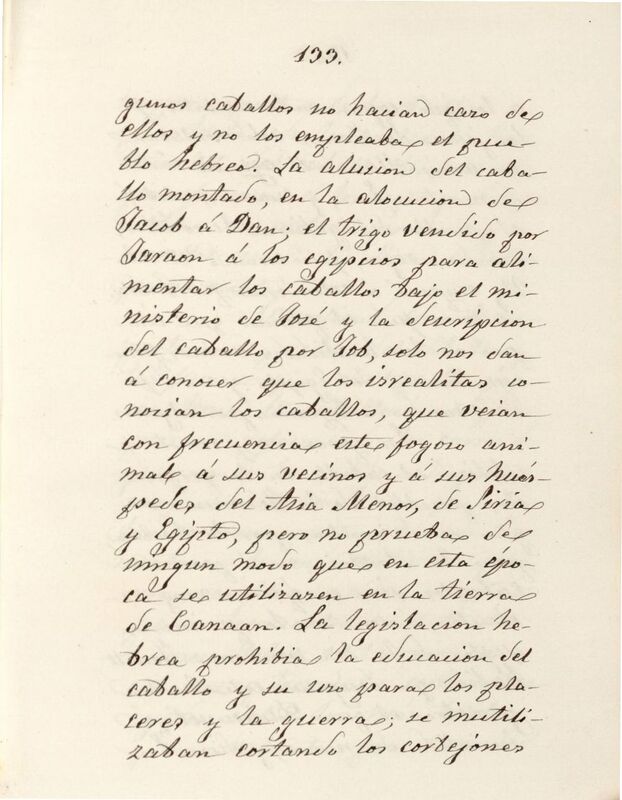 133.
gunos caballos no hacian cazo de
ellos y no los empleaba el pue-
blo hebreo. La alusion del caba-
llo montado, en la alocucion de
Jacob á Dan; el trigo vendido por
Faraon á los egipcios para ali-
mentar los caballos bajo el mi-
nisterio de José y la descripcion
del caballo por Job, solo nos dan
á conocer que los isrealitas co-
nocian los caballos, que veian
con frecuencia este fogoso ani-
mal á sus vecinos y á sus hués-
pedes del Asia Menor, de Siria
y Egipto, pero no prueba de
ningun modo que en esta épo-
ca se utilizaren en la tierra
de Canaan. La legislacion he-
brea prohibia la educacion del
caballo y su uzo para los pla-
ceres y la guerra; se inutili-
zaban cortando los corbejónes